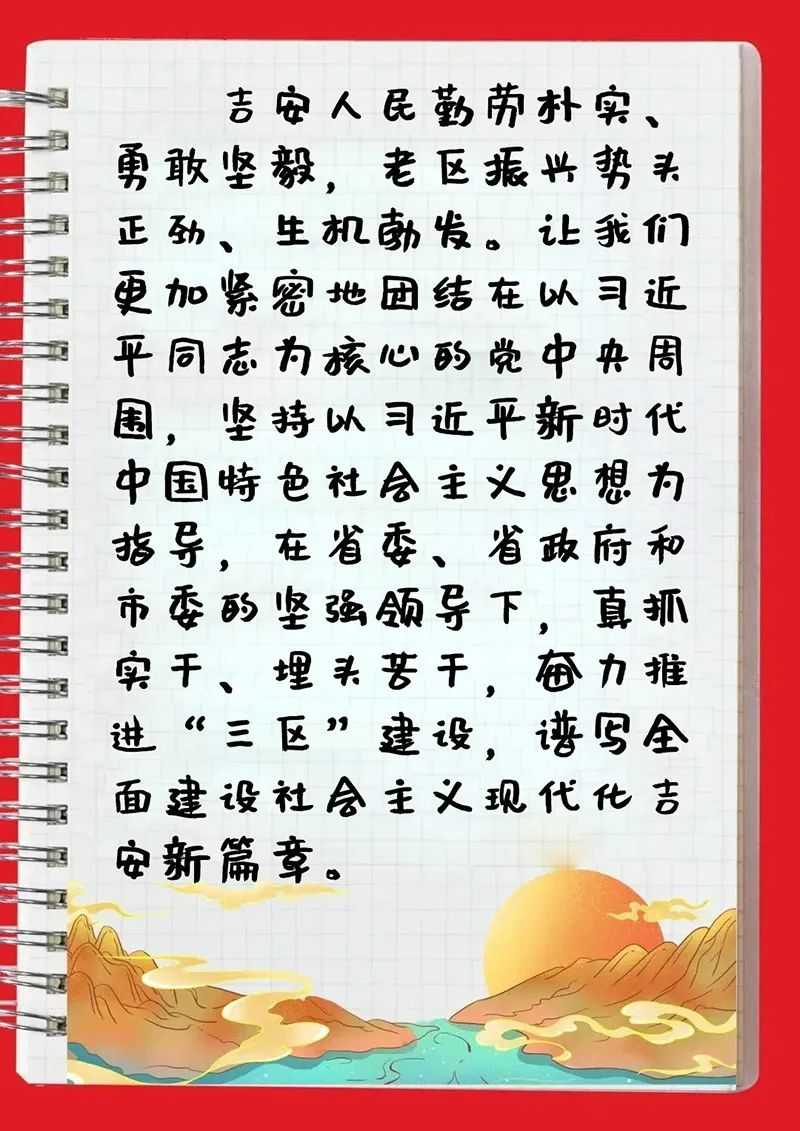 吉安人民勤劳朴实、
勇敢坚毅，老区振兴势头
正劲、生机勃发。让我们
更加紧密地团结在以习近
平同志为核心的党中央周
围，坚持以习近平新时代
中国特色社会主义思想为
指导，在省委、省政府和
市委的坚强领导下，真抓
实干、埋头苦干，奋力推
进“三区”建设，谱写全
面建设社会主义现代化吉
安新篇章。